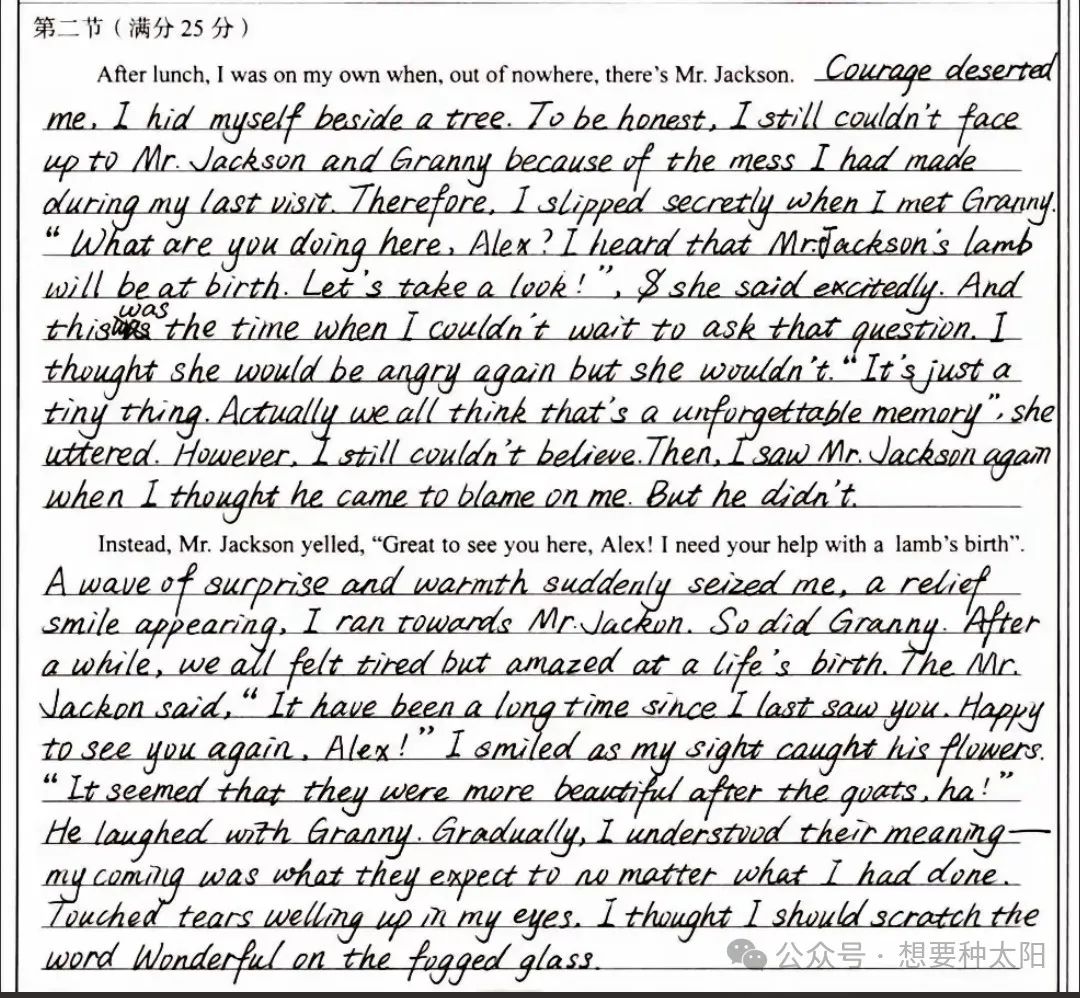 第二节（满分 25 分）
After lunch, I was on my own when, out of nowhere, there's Mr. Jackson. Courage deserted
me, I hid myself beside a tree. To be honest, I still couldn't face
up to Mr. Jackson and Granny because of the mess I had made
during my last visit. Therefore, I slipped secretly when I met Granny.
“What are you doing here, Alex? I heard that Mr.Jackson's lamb
will be at birth. Let's take a look!”, she said excitedly. And
this was the time when I couldn't wait to ask that question. I
thought she would be angry again but she wouldn't. “It's just a
tiny thing. Actually we all think that's a unforgettable memory”, she
uttered. However, I still couldn't believe. Then, I saw Mr. Jackson again
when I thought he came to blame on me. But he didn't.
Instead, Mr. Jackson yelled, “Great to see you here, Alex! I need your help with a lamb's birth”.
A wave of surprise and warmth suddenly seized me, a relief
smile appearing, I ran towards Mr. Jackon. So did Granny. After
a while, we all felt tired but amazed at a life's birth. The Mr.
Jackon said, “It have been a long time since I last saw you. Happy
to see you again, Alex!” I smiled as my sight caught his flowers.
“It seemed that they were more beautiful after the goats, ha!”
He laughed with Granny. Gradually, I understood their meaning—
my coming was what they expect to no matter what I had done.
Touched tears welling up in my eyes. I thought I should scratch the
word Wonderful on the fogged glass.
公众号 · 想要种太阳